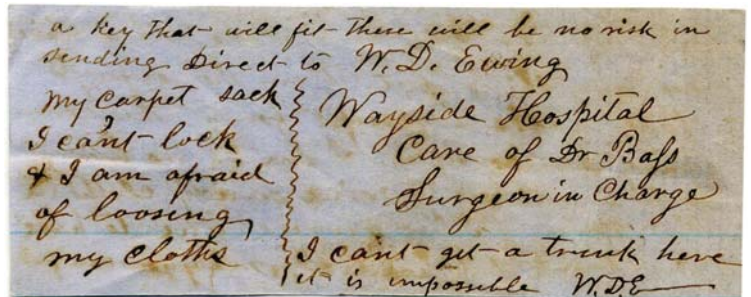 a key that will fit there will be no risk in
sending direct to W. D. Ewing
my carpet sack
I can't lock
& I am afraid
of loosing
my cloths
Wayside Hospital
Care of Dr Bass
Surgeon in Charge
I cant get a trunk here
it is impossible W. D E